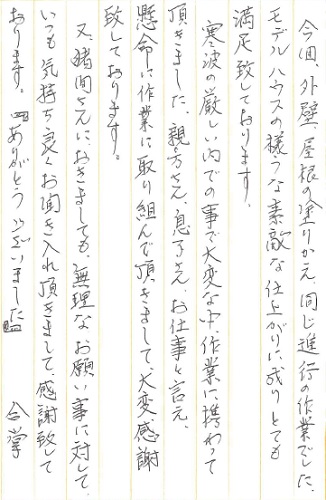 今回、外壁、屋根の塗りかえ、同じ進行の作業でした、
モデルハウスの様うな素敵な仕上がりに成りとても
満足致しております。
寒波の厳しい内での事で大変な中、作業に携わって
頂きました、親方さん、息子さん、お仕事と言え、
懸命に作業に取り組んで頂きまして、大変、感謝
致しております。
又、猪間さんにおきましても、無理なお願い事に対して、
いつも気持ち良くお聞き入れ頂きまして、感謝致して
おります。ありがとうございました 合掌